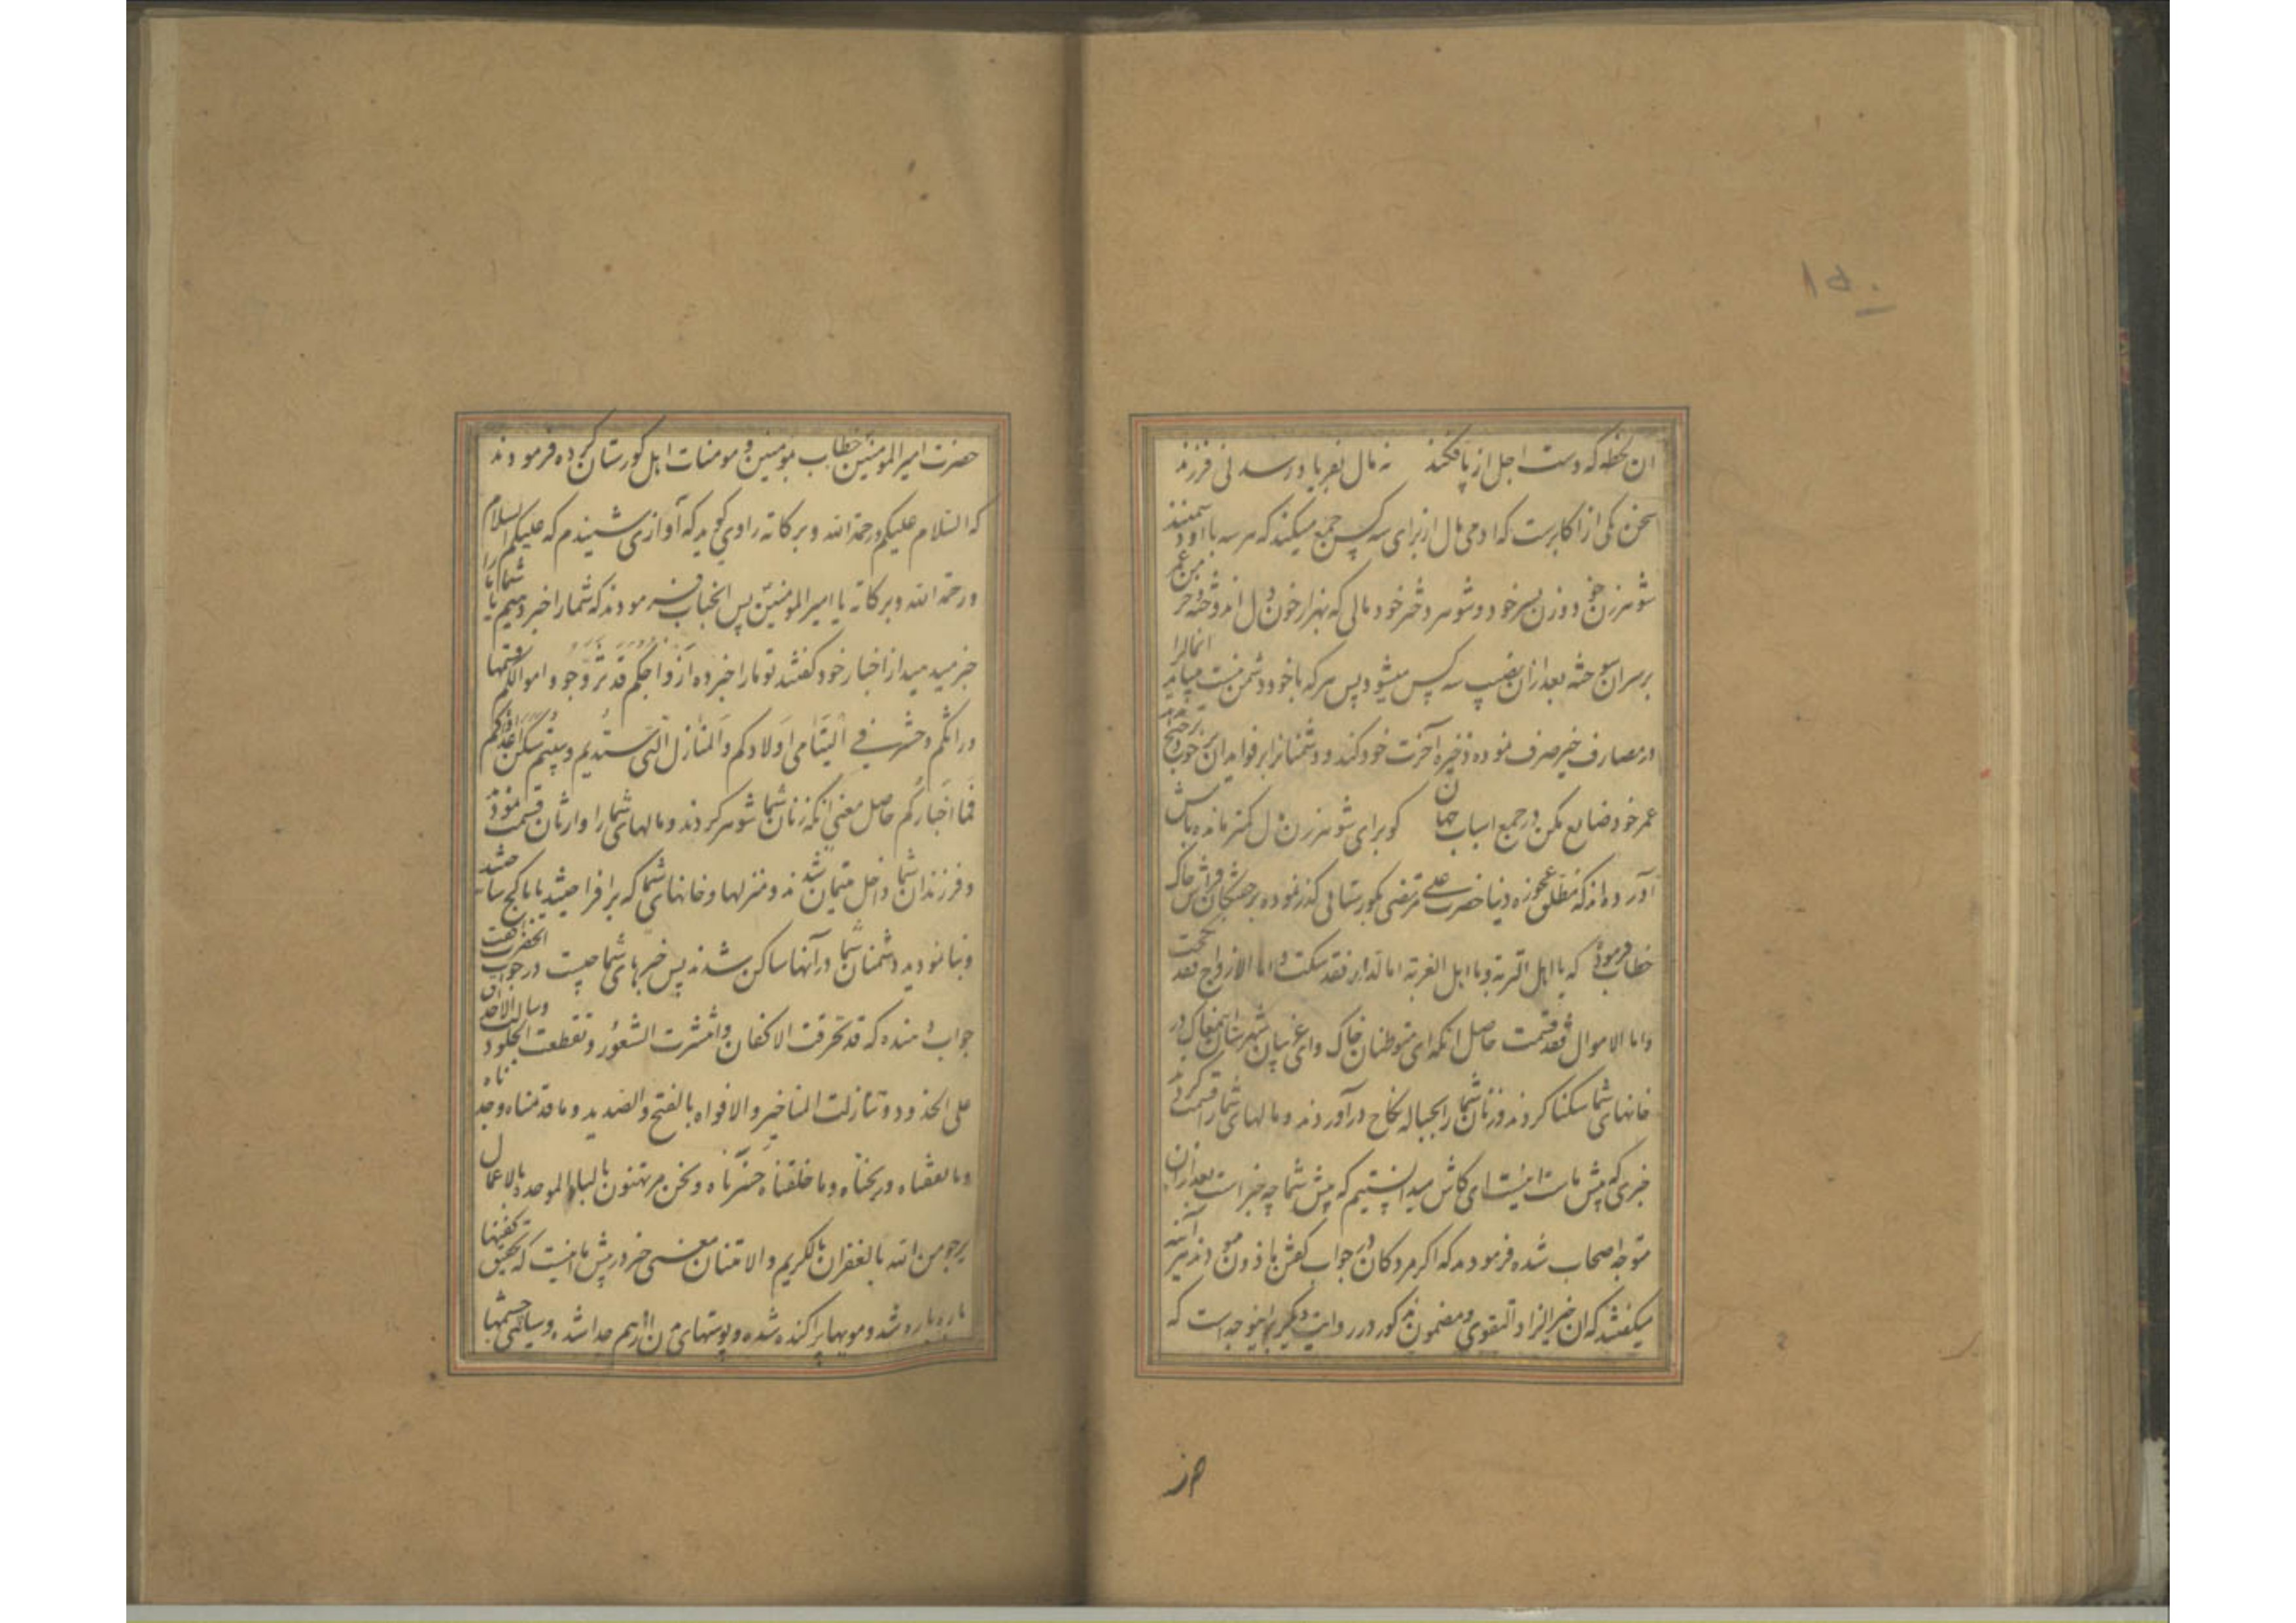 ۱۵۰
ان لحظه که دست اجل از پا فکند نه مال بفریاد رسد نی فرزند
سخن یکی از اکابرست که ادمی مال از برای سه کس جمع میکند که هر سه با او دشمنند
شوهر زن خود و زن پسر خود و شوهر دختر خود مالی که بهزار خون دل اندوخته و جز
بر سر آن سوخته بعد از آن نصیب سه کس میشود پس هر که با خود دشمن نیست میباید انمالرا
در مصارف خیر صرف نموده ذخیره آخرت خود کند و دشمنانرا بر فواید آن
عمر خود ضایع مکن در جمع اسباب جهان کو برای شوهر زن مال کمتر مانده باش
آورده اند که مطلق عجوزه دنیا حضرت علی مرتضی بکورستانی کذر نموده بر خفتکان فراش خاک
خطاب فرمود که یا اهل التربة ویا اهل الغربة اما الدار فقد سکنت واما الازواج فقد نکحت
واما الاموال فقد قسمت حاصل انکه ای متوطنان خاک وای غریبان شهرستان مغاک در
خانهای شما سکنا کردند و زنان شما را بحباله نکاح در آوردند و مالهای شما را قسمت کردند
خبری که پیش ماست اینست ای کاش میدانستیم که پیش شما چه خبر است بعد از آن
متوجه اصحاب شده فرمودند که اکر مردکان در جواب کفتن ماذون بودند آینه
میکفتند که ان خیر الزاد التقوی و مضمون مذکور در روایت دیکر باینوجه است که
حضرت امیر المومنین خطاب بمومنین و مومنات اهل کورستان کرده فرمودند
که السلام علیکم ورحمة الله وبرکاته راوی کوید که آوازی شنیدم که علیکم السلام
ورحمة الله وبرکاته یا امیر المومنین پس انجناب فرمودند که شما را خبر دهیم یا شما ما را
خبر میدهید از اخبار خود کفتند تو ما را خبر ده ازواجکم قد تزوجوا واموالکم قسمتها
وراثکم وحشرت فی الیتامی اولادکم والمنازل التی شیدتم وبنیتم سکن اعداؤکم
فما اخبارکم حاصل معنی انکه زنان شما شوهر کردند و مالهای شما را وارثان قسمت نمودند
و فرزندان شما داخل یتیمان شدند و منزلها و خانهای شما که بر افراختید یا با کج ساختید
و بنا نمودید دشمنان شما در آنها ساکن شدند پس خبرهای شما چیست در جواب انحضرت
جواب دهنده که قد تخرقت الاکفان وانتشرت الشعور وتقطعت الجلود وسالت الاحداق
علی الخدود وتنازلت المناخیر والافواه بالفتح والصدید وما قدمناه وجدناه
وما انفقناه وربحناه وما خلفناه خسرناه ونحن مرتهنون بالاعمال
یرجو من الله بالغفران بالکریم والامتنان معنی خبر در پیش ما اینست که بتحقیق کفنها
پاره پاره شد و مویها پراکنده شده و پوستهای تن از هم جدا شده و سیاهی چشمها